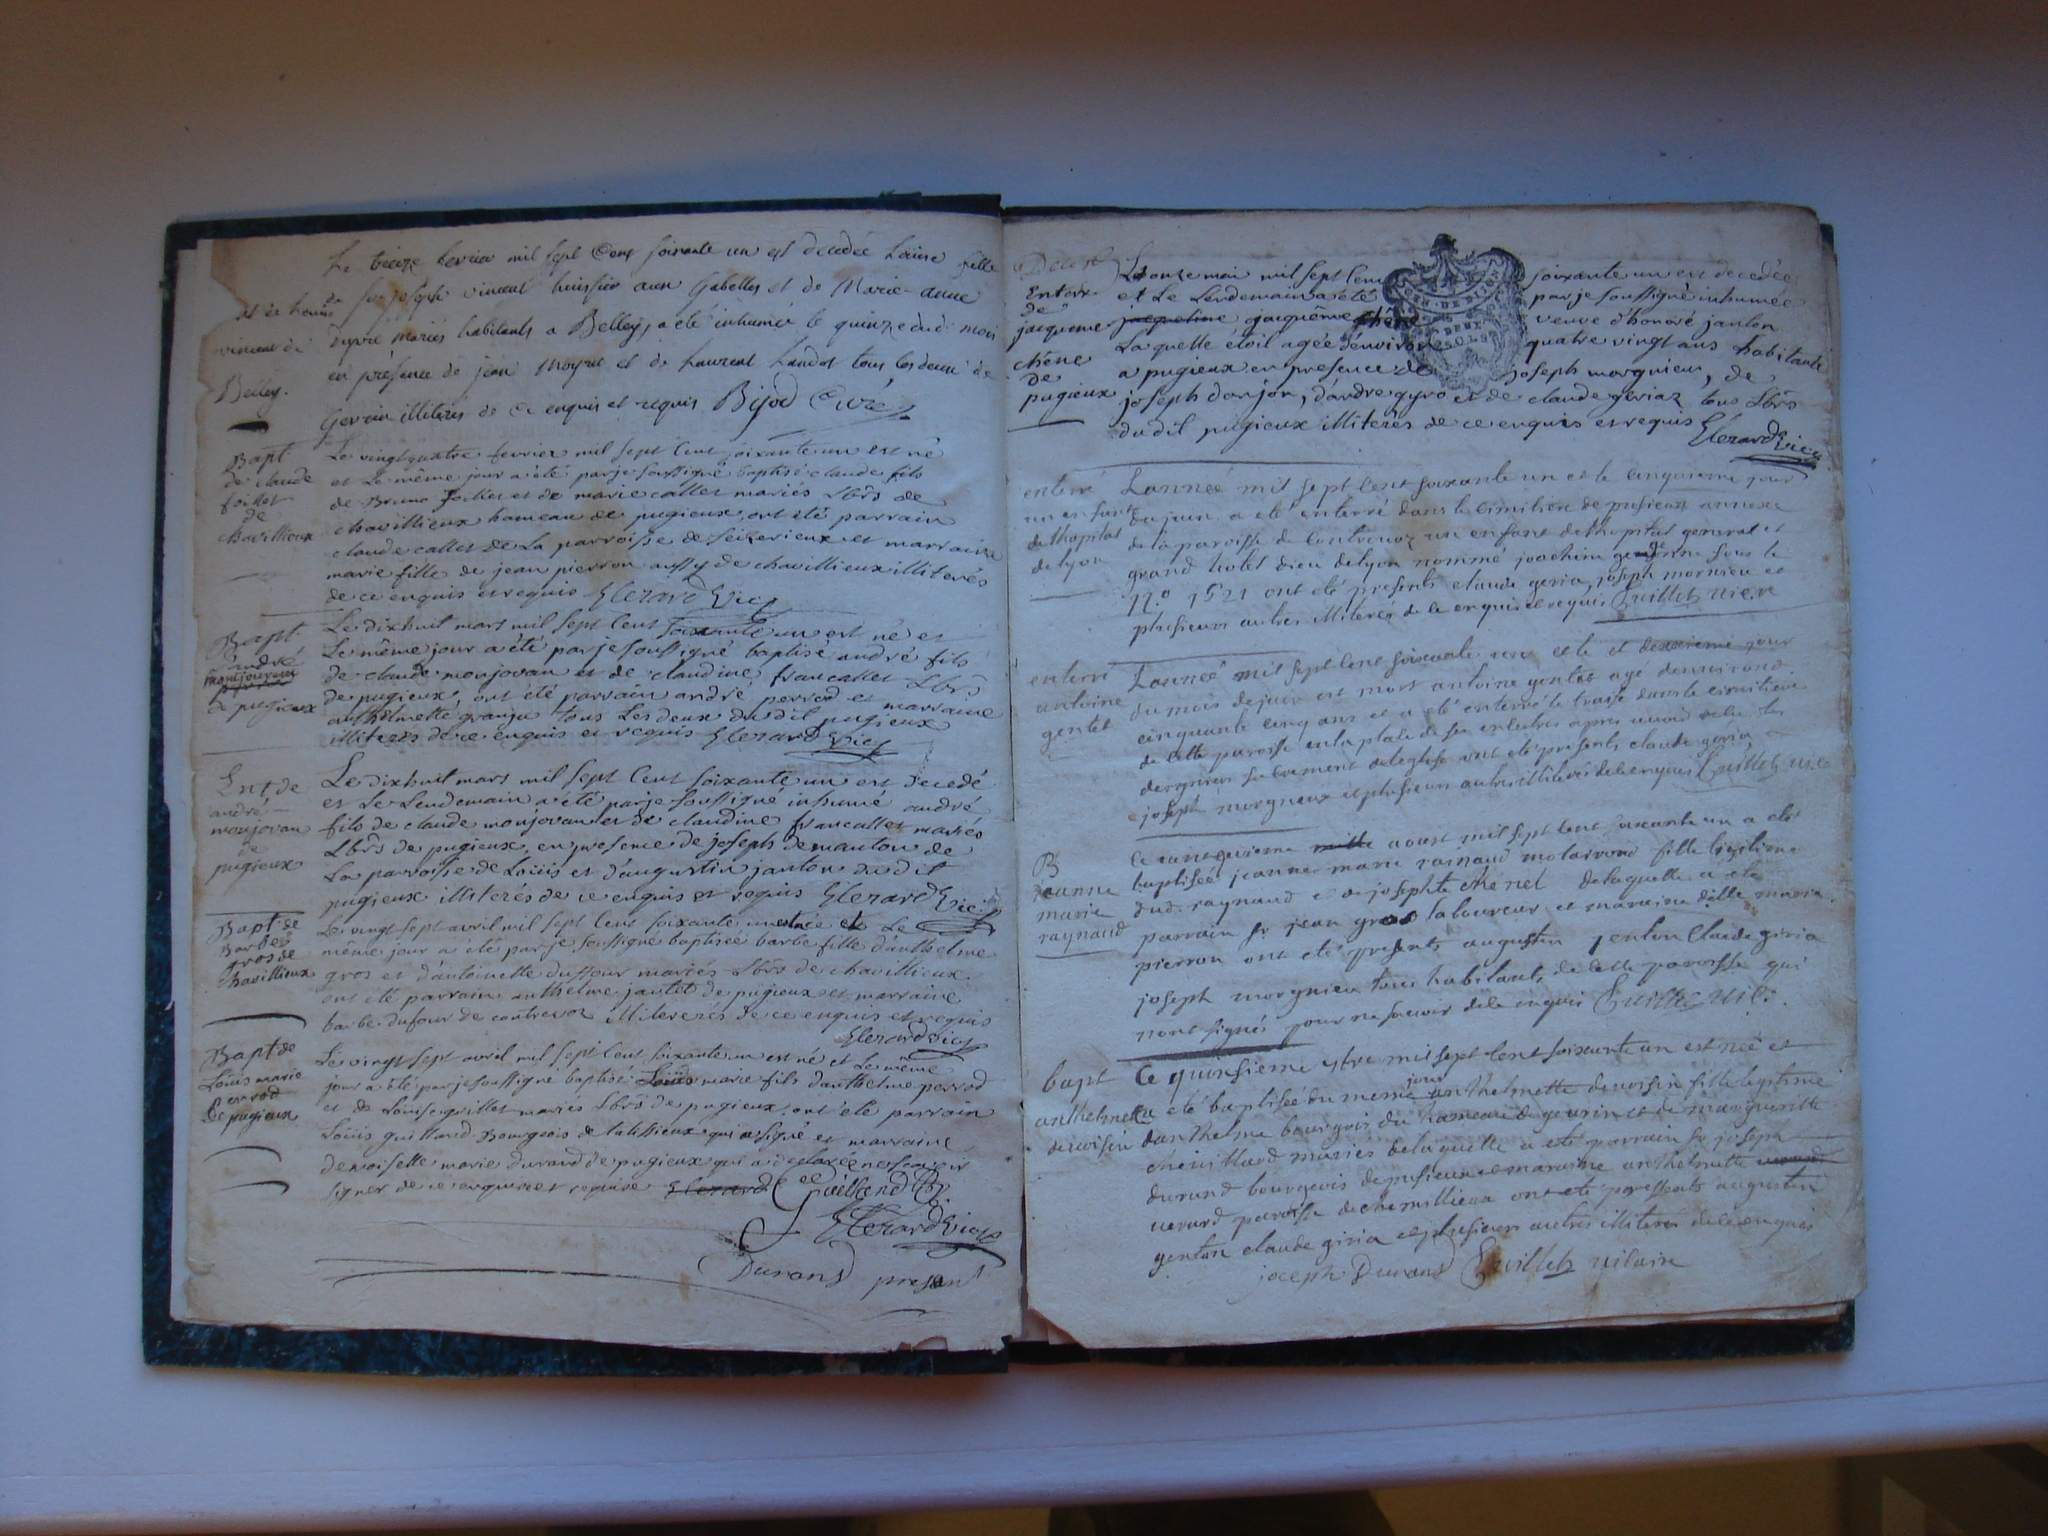 Le treize fevrier mil sept Cens soixante un est decedée Loüise fille
de Sr joseph vincent huissier aux Gabelles et de Marie-anne
vincent de
mariés habitants a Belley, a eté inhumée le quinze dud: mois
Belley.
en présence de jean Moyret et de Laurent tous les deux de
Gevrin illiteres de ce enquis et requis Bijod Curé
Bapt
de claude
de
chavillieux
Le vingt quatre fevrier mil sept Cent soixante un est né
et Le même jour a été par je soussigné baptisé claude fils
de Bruno et de marie callet mariés Lbrs de
chavillieux hameau de pugieux, ont été parrain
claude callet de La parroisse de Ceizerieux et marraine
marie fille de jean pierron aussy de chavillieux illiterés
de ce enquis et requis Clerard Vicr
Bapt.
d'andré
monjouvan
de pugieux
Le dixhuit mars mil sept Cent soixante un est né et
Le même jour a été par je soussigné baptisé andré fils
de claude monjovan et de claudine francallet Lbrs
de pugieux, ont été parrain andré perrod et marraine
anthelmette granju tous Les deux du dit pugieux
illiterés de ce enquis et requis Clerard Vicr
Ent. de
andré
monjovan
de
pugieux
Le dixhuit mars mil sept Cent soixante un est decedé
et Le Lendemain a été par je soussigné inhumé andré
fils de claude monjovan et de claudine francallet mariés
Lbrs de pugieux, en presence de joseph demanton de
La parroisse de Loüis et d'augustin janton du dit
pugieux illiterés de ce enquis et requis Clerard Vicr
Bapt. de
Barbe
gros de
chavillieux
Le vingt sept avril mil sept Cent soixante un est née et Le
même jour a été par je soussigné baptisée barbe fille d'anthelme
gros et d'antoinette duffour mariés Lbrs de chavillieux.
ont été parrain anthelme jantet de pugieux et marraine
barbe dufour de contrevoz illiterés de ce enquis et requis
Clerard Vicr
Bapt. de
Loüis marie
perrod
de pugieux
Le vingt sept avril mil sept Cent soixante un est né et Le même
jour a été par je soussigné baptisé Loüis marie fils d'anthelme perrod
et de Loüise guillet mariés Lbrs de pugieux, ont été parrain
Loüis guilland Bourgeois de qui a signé et marraine
demoiselle marie durand de pugieux qui a declarée ne sçavoir
signer de ce enquise et requise Clerard Guilland
Clerard Vicr
Durand present
Enterr
de
jaqueme
chêne
de
pugieux
Le onze mai mil sept Cent soixante un est decedée
et Le Lendemain a été par je soussigné inhumée
jaqueline jaquême chêne veuve d'honoré janton
Laquelle étoit agée d'environ quatre vingt ans habitante
a pugieux en presence de joseph morgnieu, de
joseph donjon, d'andre gyro et de claude giriaz tous Lbrs
du dit pugieux illiterés de ce enquis et requis Clerard Vicr
enterré
un enfant
de lhopital
de lyon
L'année mil sept cent soixante un et le cinquieme jour
de juin a eté enterré dans le cimitiere de pusieux annexe
de la paroisse de Contrevoz un enfant de lhopital general et
grand hotel dieu de lyon nommé joachim sous le
no 1521 ont eté presents claude geria, joseph mornieu et
plusieurs autres illiterés de ce enquis et requis Guillet vicre
enterré
antoine
gentet
L'année mil sept cent soixante un et le deuxieme jour
du mois de juin est mort antoine gentet agé d'environ
cinquante cinq ans et a eté enterré le troise dans le cimitiere
de cette paroisse en la place de ses ancetres apres avoir recu les
derniers sacrement de leglise ont eté presents claude geria,
joseph morgneux et plusieurs autres illiterés de ce enquis Guillet vice
B
jeanne
marie
raynaud
Ce aoust mil sept cent soixante un a eté
baptisée jeanne marie rainaud fille legitime
dud. raynaud et de josephte chenet de laquelle a eté
parrain sr jean gros laboureur et maraine delle maria
pierron ont eté presents augustin jenton Claude giria
joseph morgnieu tous habitants de cette paroisse qui
nont signés pour ne savoir de ce enquis Guillet vice.
bapt
anthelmette
devoisin
Ce quinsieme 9bre mil sept cent soixante un est neé et
a eté baptiseé du meme jour anthelmette devoisin fille legitime
d'anthelme bourgois du hameau de gevrin et de margueritte
chevillard mariés de laquelle a eté parrain sr joseph
durand bourgeois de pusieux et maraine anthelmette
uerard paroisse de chemillieu ont eté presents augustin
genton claude giria et plusieurs autres illiteres de ce enquis
joseph Durand Guillet vicaire